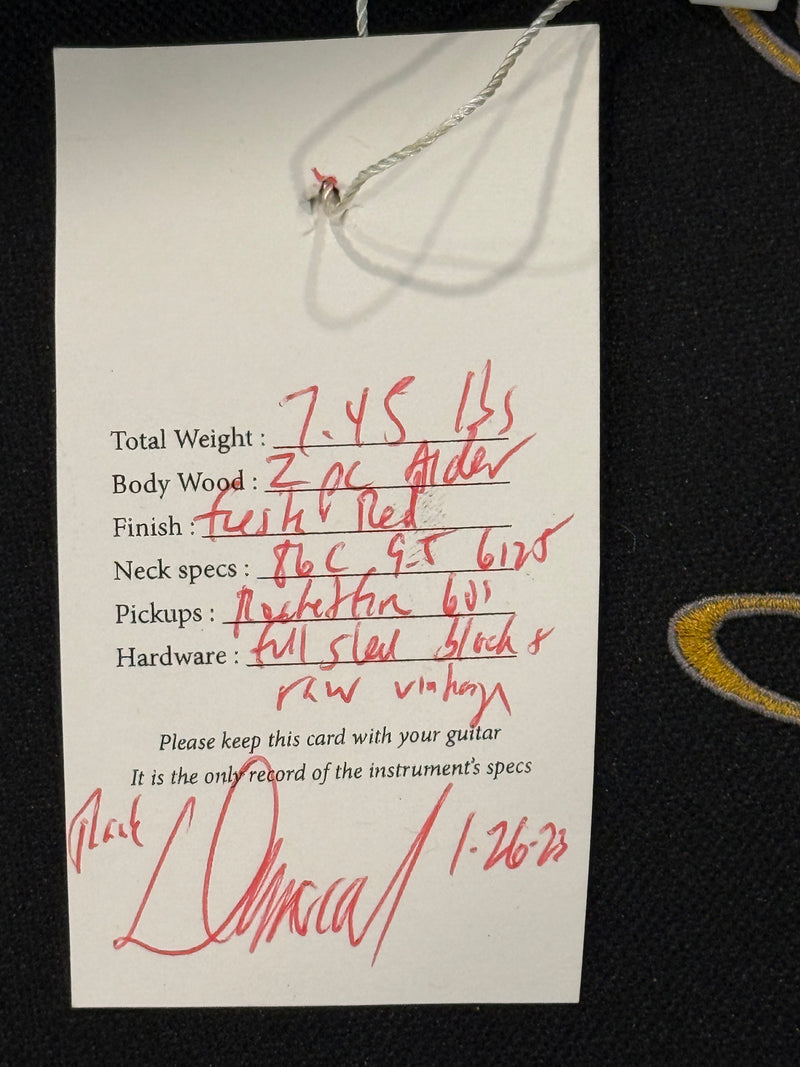 Total Weight : 7.45 lbs
Body Wood : 2 pc Alder
Finish : fresh Red
Neck specs : 86 C 9.5 6125
Pickups : 60s
Hardware : full steel block &
raw vintage
Please keep this card with your guitar
It is the only record of the instrument's specs
1-26-23